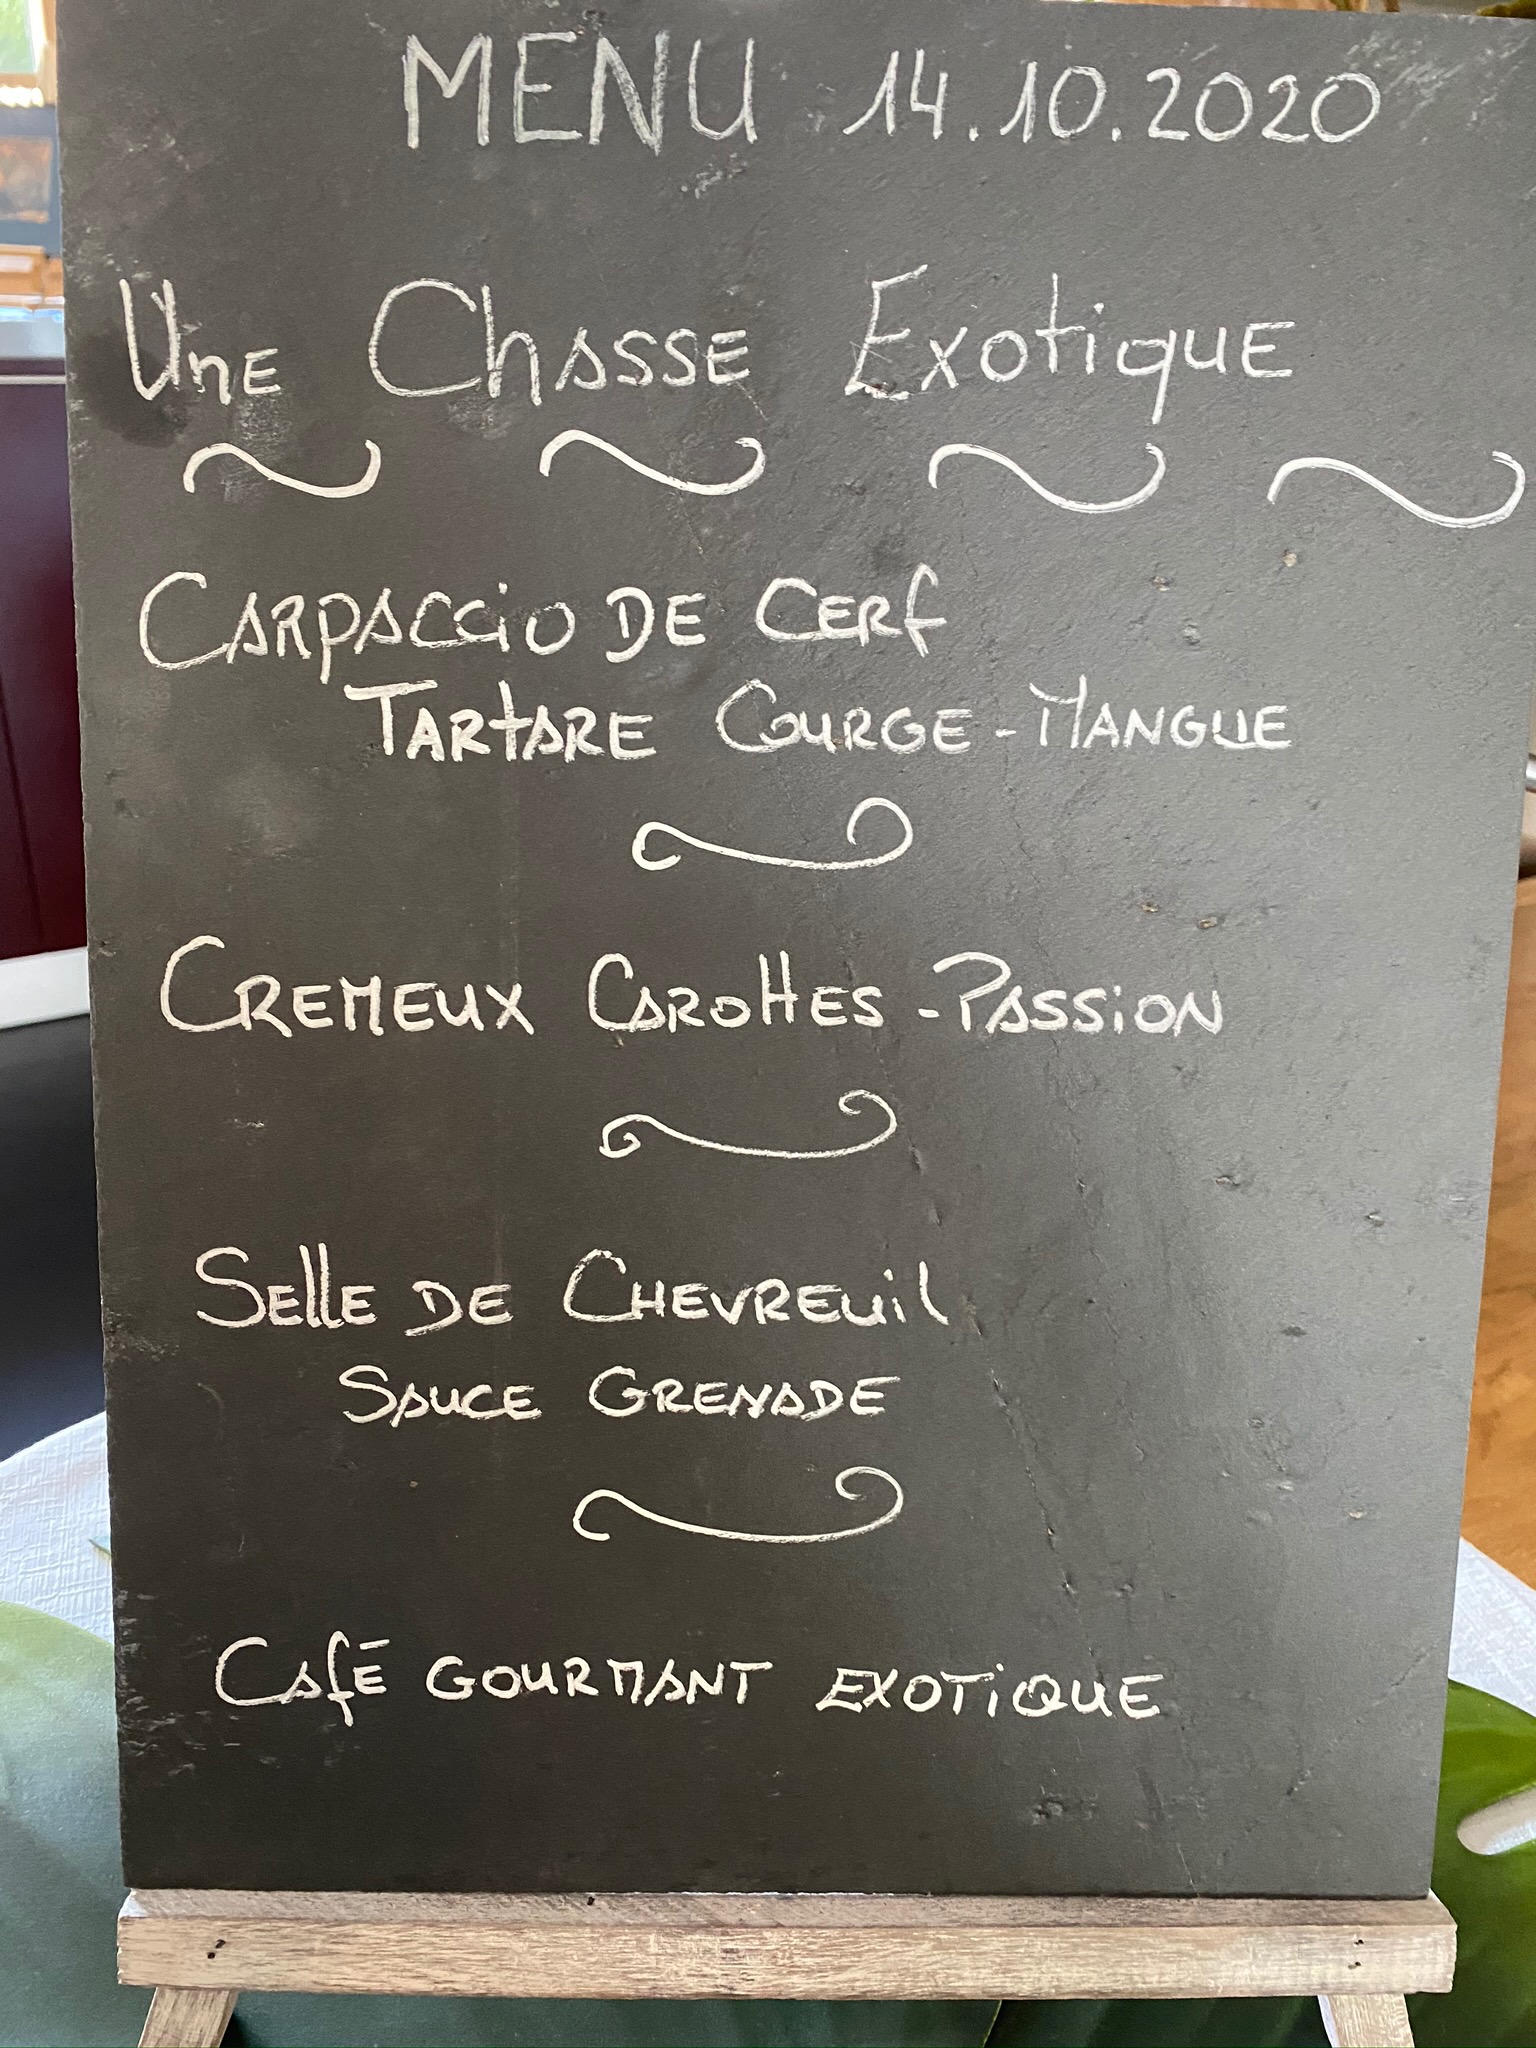 MENU 14.10.2020
Une Chasse Exotique
Carpaccio de Cerf
Tartare Courge-Mangue
Cremeux Carottes-Passion
Selle de Chevreuil
Sauce Grenade
Café gourmant exotique